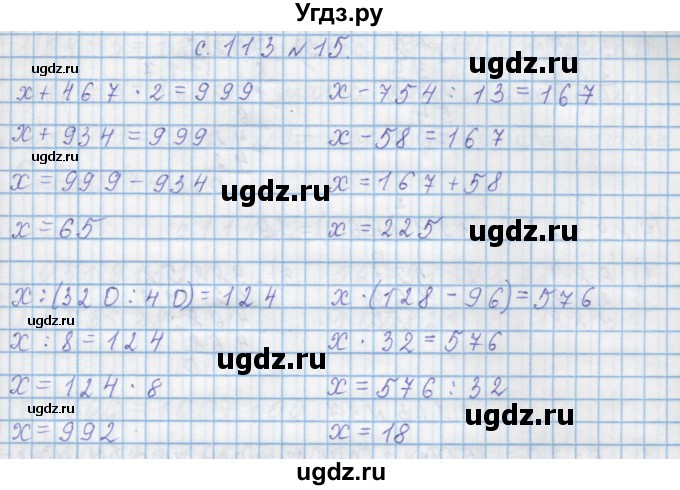 Угдз.ру
с. 113 № 15.
ugdz.ru
ugdz.ru
x + 467 · 2 = 999
x + 934 = 999
x = 999 - 934
x = 65
ugdz.ru
ugdz.ru
x - 754 : 13 = 167
x - 58 = 167
x = 167 + 58
x = 225
ugdz.ru
ugdz.ru
x : (320 : 40) = 124
x : 8 = 124
x = 124 · 8
x = 992
ugdz.ru
ugdz.ru
ugdz.ru
x · (128 - 96) = 576
x · 32 = 576
x = 576 : 32
x = 18
ugdz.ru
ugdz.ru